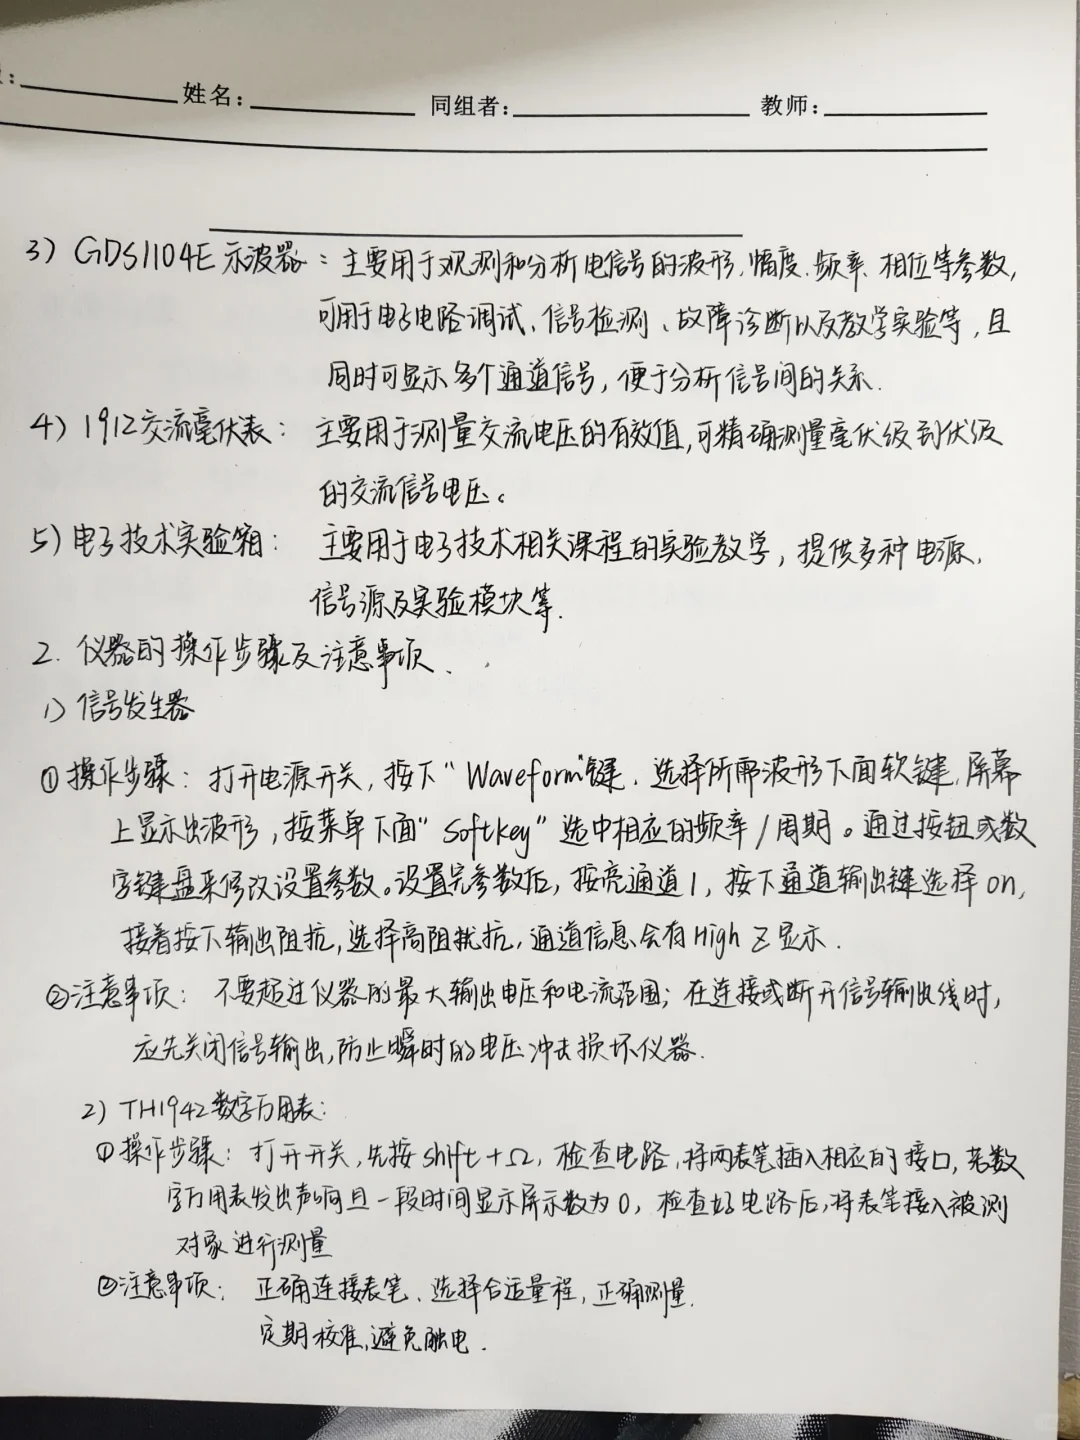 姓名: 同组者: 教师:
3) GDS1104E 示波器: 主要用于观测和分析电信号的波形、幅度、频率、相位等参数,
可用于电子电路调试、信号检测、故障诊断以及教学实验等,且
同时可显示多个通道信号,便于分析信号间的关系.
4) 1912交流毫伏表: 主要用于测量交流电压的有效值,可精确测量毫伏级到伏级
的交流信号电压。
5) 电子技术实验箱: 主要用于电子技术相关课程的实验教学,提供多种电源、
信号源及实验模块等.
2. 仪器的操作步骤及注意事项.
1) 信号发生器
①操作步骤: 打开电源开关,按下“Waveform”键、选择所需波形下面软键,屏幕
上显示出波形,按菜单下面“Softkey”选中相应的频率/周期。通过按钮或数
字键盘来修改设置参数。设置完参数后,按亮通道1,按下通道输出键选择on,
接着按下输出阻抗,选择高阻扰抗,通道信息会有High Z显示.
②注意事项: 不要超过仪器的最大输出电压和电流范围;在连接或断开信号输出线时,
应先关闭信号输出,防止瞬时的电压冲击损坏仪器.
2) TH1942数字万用表:
①操作步骤: 打开开关,先按shift+Ω,检查电路,将两表笔插入相应的接口,若数
字万用表发出声响且一段时间显示屏示数为0,检查好电路后,将表笔接入被测
对象进行测量
②注意事项: 正确连接表笔、选择合适量程,正确测量.
定期校准,避免触电.